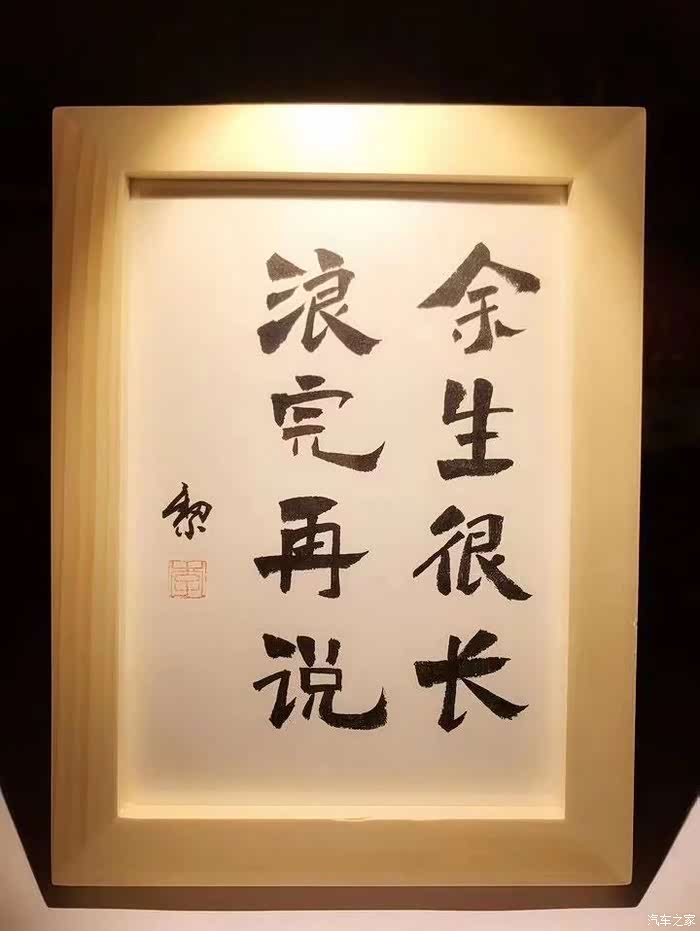 余生很长
浪完再说
黎
汽车之家